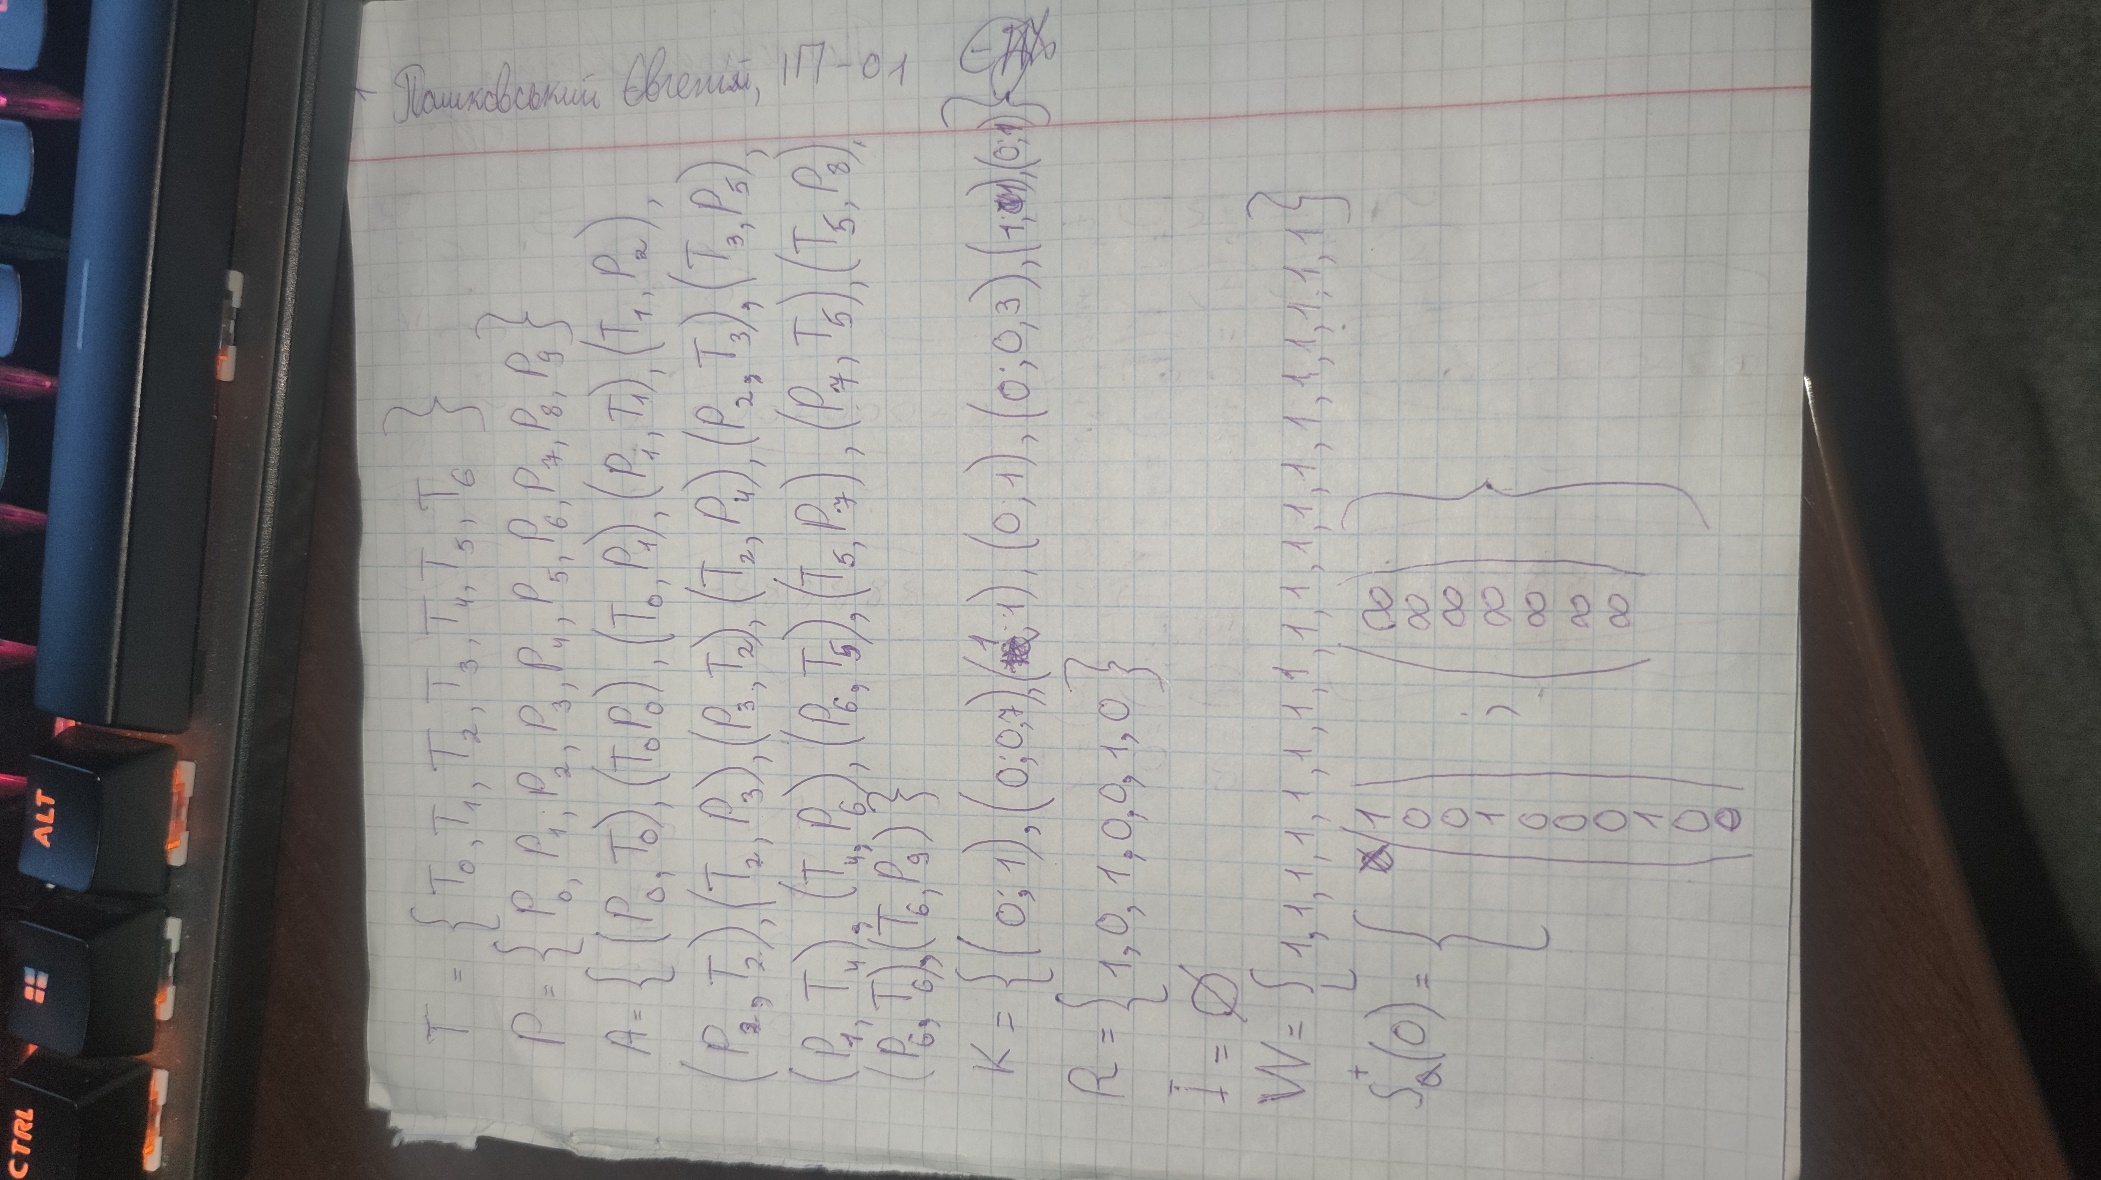 Пашковський Євгеній, ІП-01
T = {T₀, T₁, T₂, T₃, T₄, T₅, T₆}
P = {P₀, P₁, P₂, P₃, P₄, P₅, P₆, P₇, P₈, P₉}
A = {(P₀, T₀), (T₀P₀), (T₀, P₁), (P₁, T₁), (T₁, P₂),
(P₂, T₂), (T₂, P₃), (P₃, T₂), (T₂, P₄), (P₂, T₃), (T₃, P₅),
(P₁, T₄), (T₄, P₆), (P₆, T₅), (T₅, P₇), (P₇, T₅), (T₅, P₈),
(P₆, T₆), (T₆, P₉)}
K = {(0; 1), (0; 0,7), (1; 1), (0; 1), (0; 0,3), (1; 1), (0; 1)}
R = {1, 0, 1, 0, 0, 1, 0}
I = ∅
W = {1, 1, 1, 1, 1, 1, 1, 1, 1, 1, 1, 1, 1, 1, 1, 1, 1, 1, 1}
S⁺(0) = {
1 ∞
0 ∞
0 ∞
1 ; ∞ }
0 ∞
0 ∞
0 ∞
1
0
0
CTRL
ALT